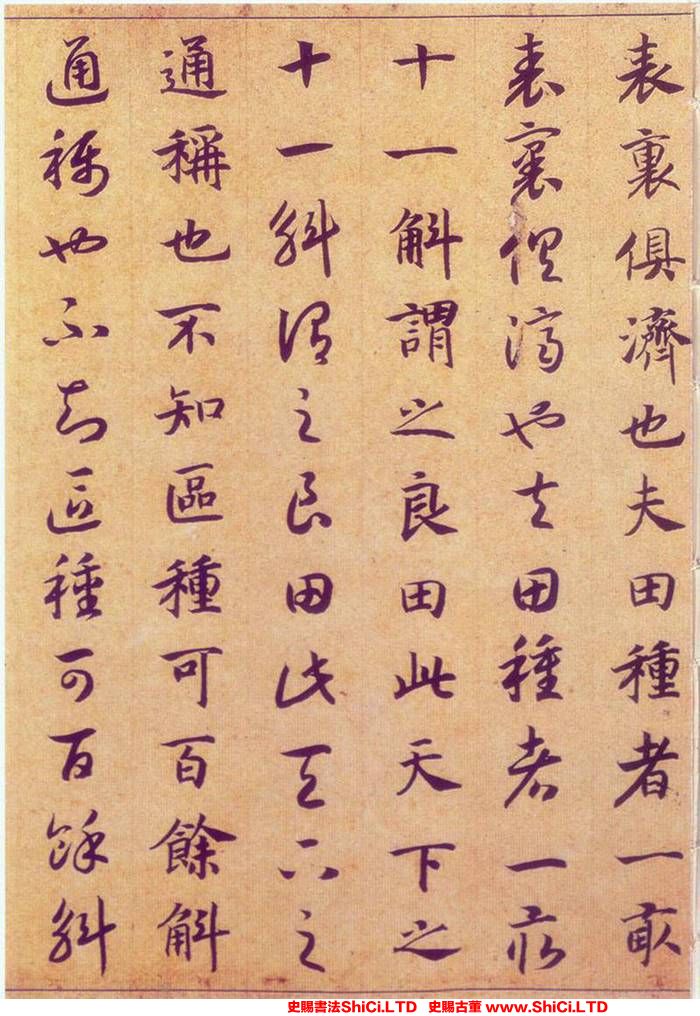 表裏俱濟也夫田種者一畝
表裏俱濟也夫田種者一畝
十一斛謂之良田此天下之
十一斛謂之良田此天下之
通稱也不知區種可百餘斛
通稱也不知區種可百餘斛
史賜書法ShiCi.LTD 史賜古董 www.ShiCi.LTD